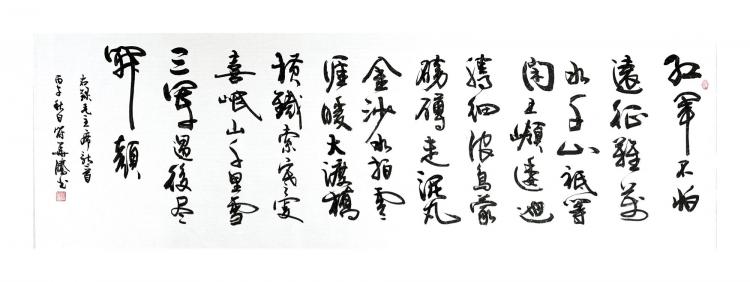 紅軍不怕
遠征難萬
水千山祗等
閑五嶺逶迤
騰細浪烏蒙
磅礴走泥丸
金沙水拍雲
崖暖大渡橋
横鐵索寒更
喜岷山千里雪
三軍過後尽
開顔
右録毛主席詩一首
丙子秋日書